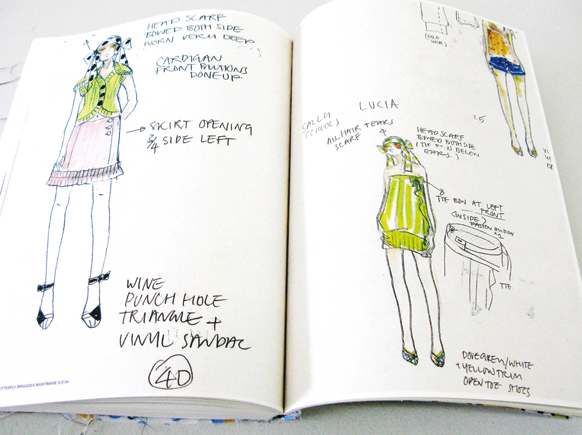 HEAD SCARF
BOWED BOTH SIDE
WORN VERY DEEP
CARDIGAN
FRONT BUTTONS
DONE UP
SKIRT OPENING
3/4 SIDE LEFT
WINE
PUNCH HOLE
TRIANGLE +
VINYL SANDAL
4D
LUCIA
ALL HAIR TEARS
SCARF
HEAD SCARF
BOWED BOTH SIDE
EARS)
TIE BOW AT LEFT
FRONT
(INSIDE)
TIE
DOVEGREEN/WHITE
+ YELLOW TRIM
OPEN TOE SHOES